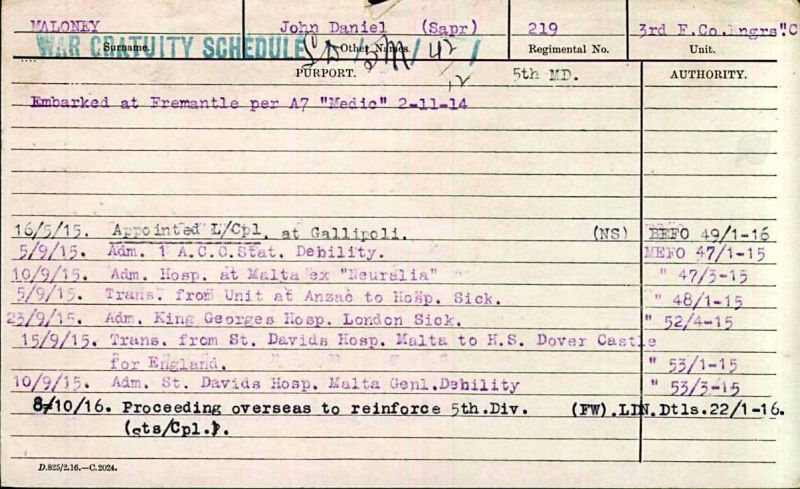 MALONEY John Daniel (Sapr) 219 3rd F.Co.Engrs"C
WAR GRATUITY SCHEDULE
Surname. Other Names. Regimental No. Unit.
PURPORT. 5th MD. AUTHORITY.
Embarked at Fremantle per A7 "Medic" 2-11-14
16/5/15. Appointed L/Cpl. at Gallipoli. (NS) BEFO 49/1-16
5/9/15. Adm. 1 A.C.C.Stat. Debility. MEFO 47/1-15
10/9/15. Adm. Hosp. at Malta ex "Neuralia" " 47/3-15
5/9/15. Trans. from Unit at Anzac to Hosp. Sick. " 48/1-15
23/9/15. Adm. King Georges Hosp. London Sick. " 52/4-15
15/9/15. Trans. from St. Davids Hosp. Malta to H.S. Dover Castle
for England. " 53/1-15
10/9/15. Adm. St. Davids Hosp. Malta Genl.Debility " 53/3-15
8/10/16. Proceeding overseas to reinforce 5th.Div. (FW).LIN.Dtls.22/1-16.
(sts/Cpl.).
D.825/2.16.—C.2024.